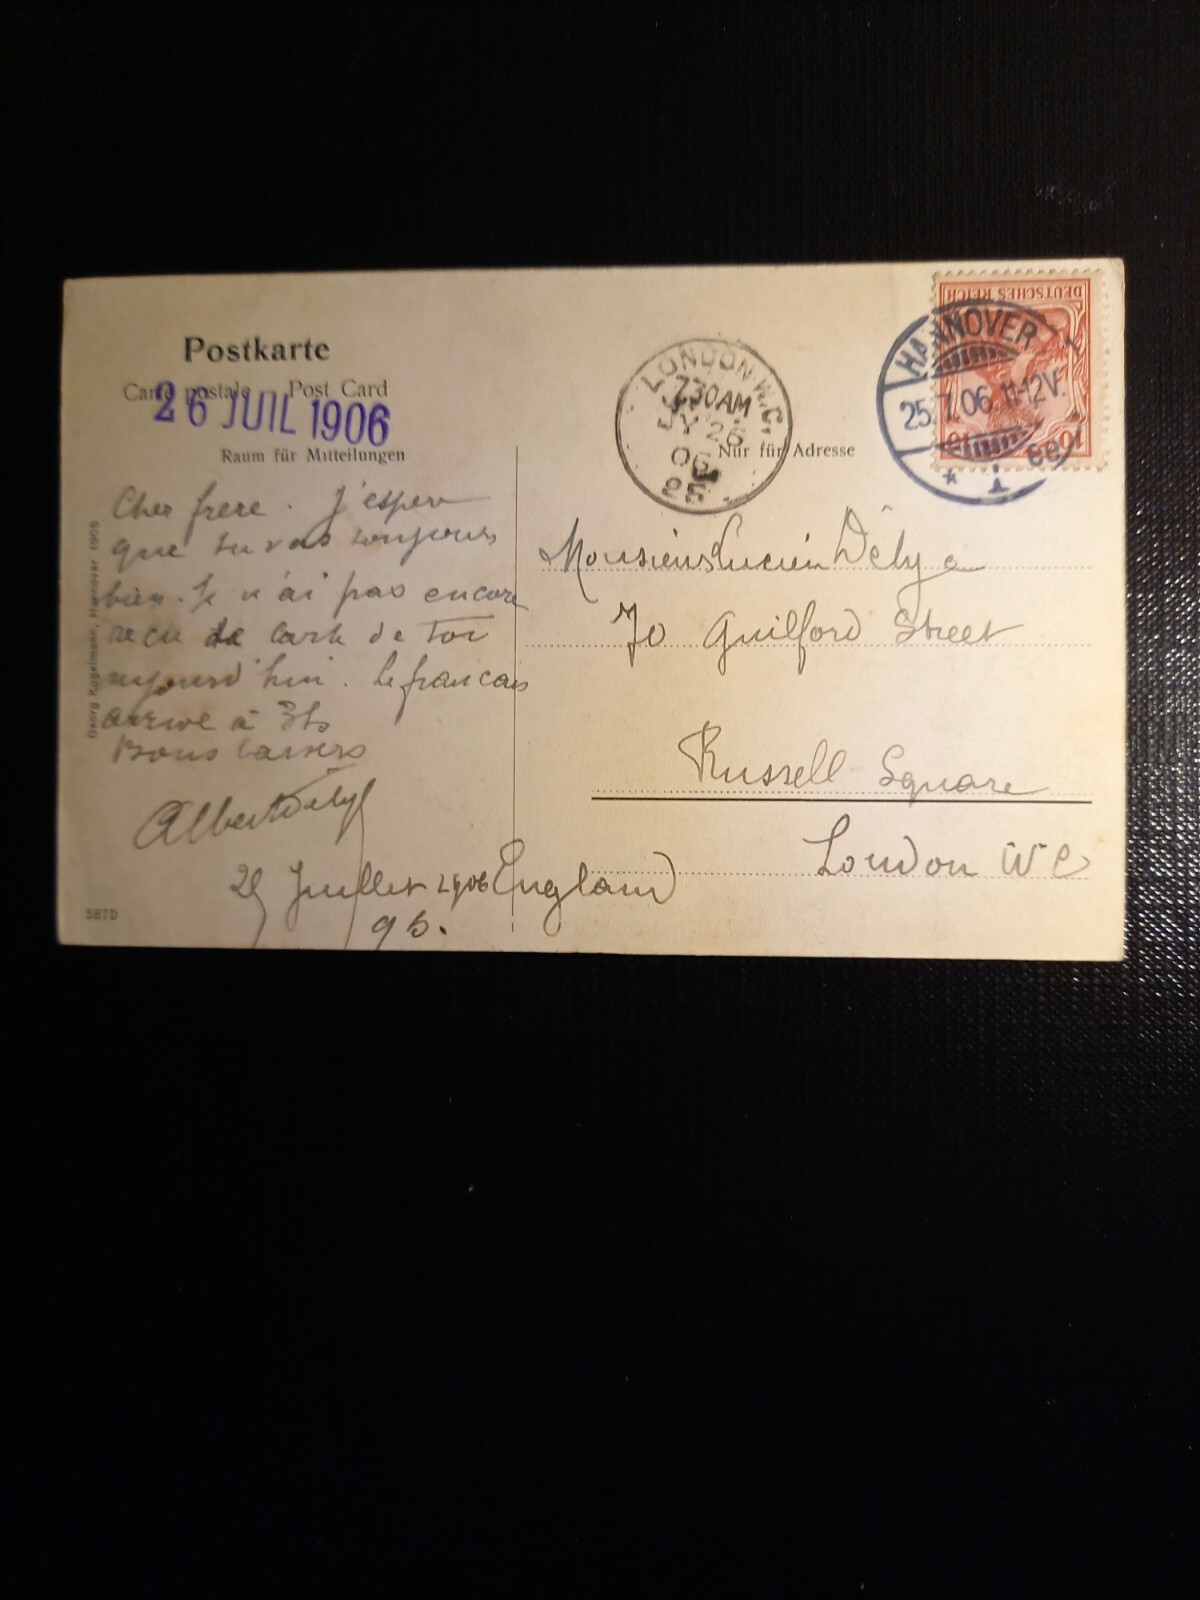 Postkarte
Carte postale Post Card
26 JUIL 1906
Raum für Mitteilungen
Cher frere. J'espere
que tu vas toujours
bien. Je n'ai pas encore
recu de carte de toi
aujourd'hui. Le francais
arrive à 3h
Bons baisers
Albert Dély
25 Juillet 1906
95.
Georg Kugelmann, Hannover 1905
587D
LONDON.W.C.
7.30AM
JY 26
06
Nur für Adresse
DEUTSCHES REICH
10 10
HANNOVER
25.7.06.11-12V.
* 1
Monsieur Lucien Dély
70 Guilford Street
Russell Square
London W C
England